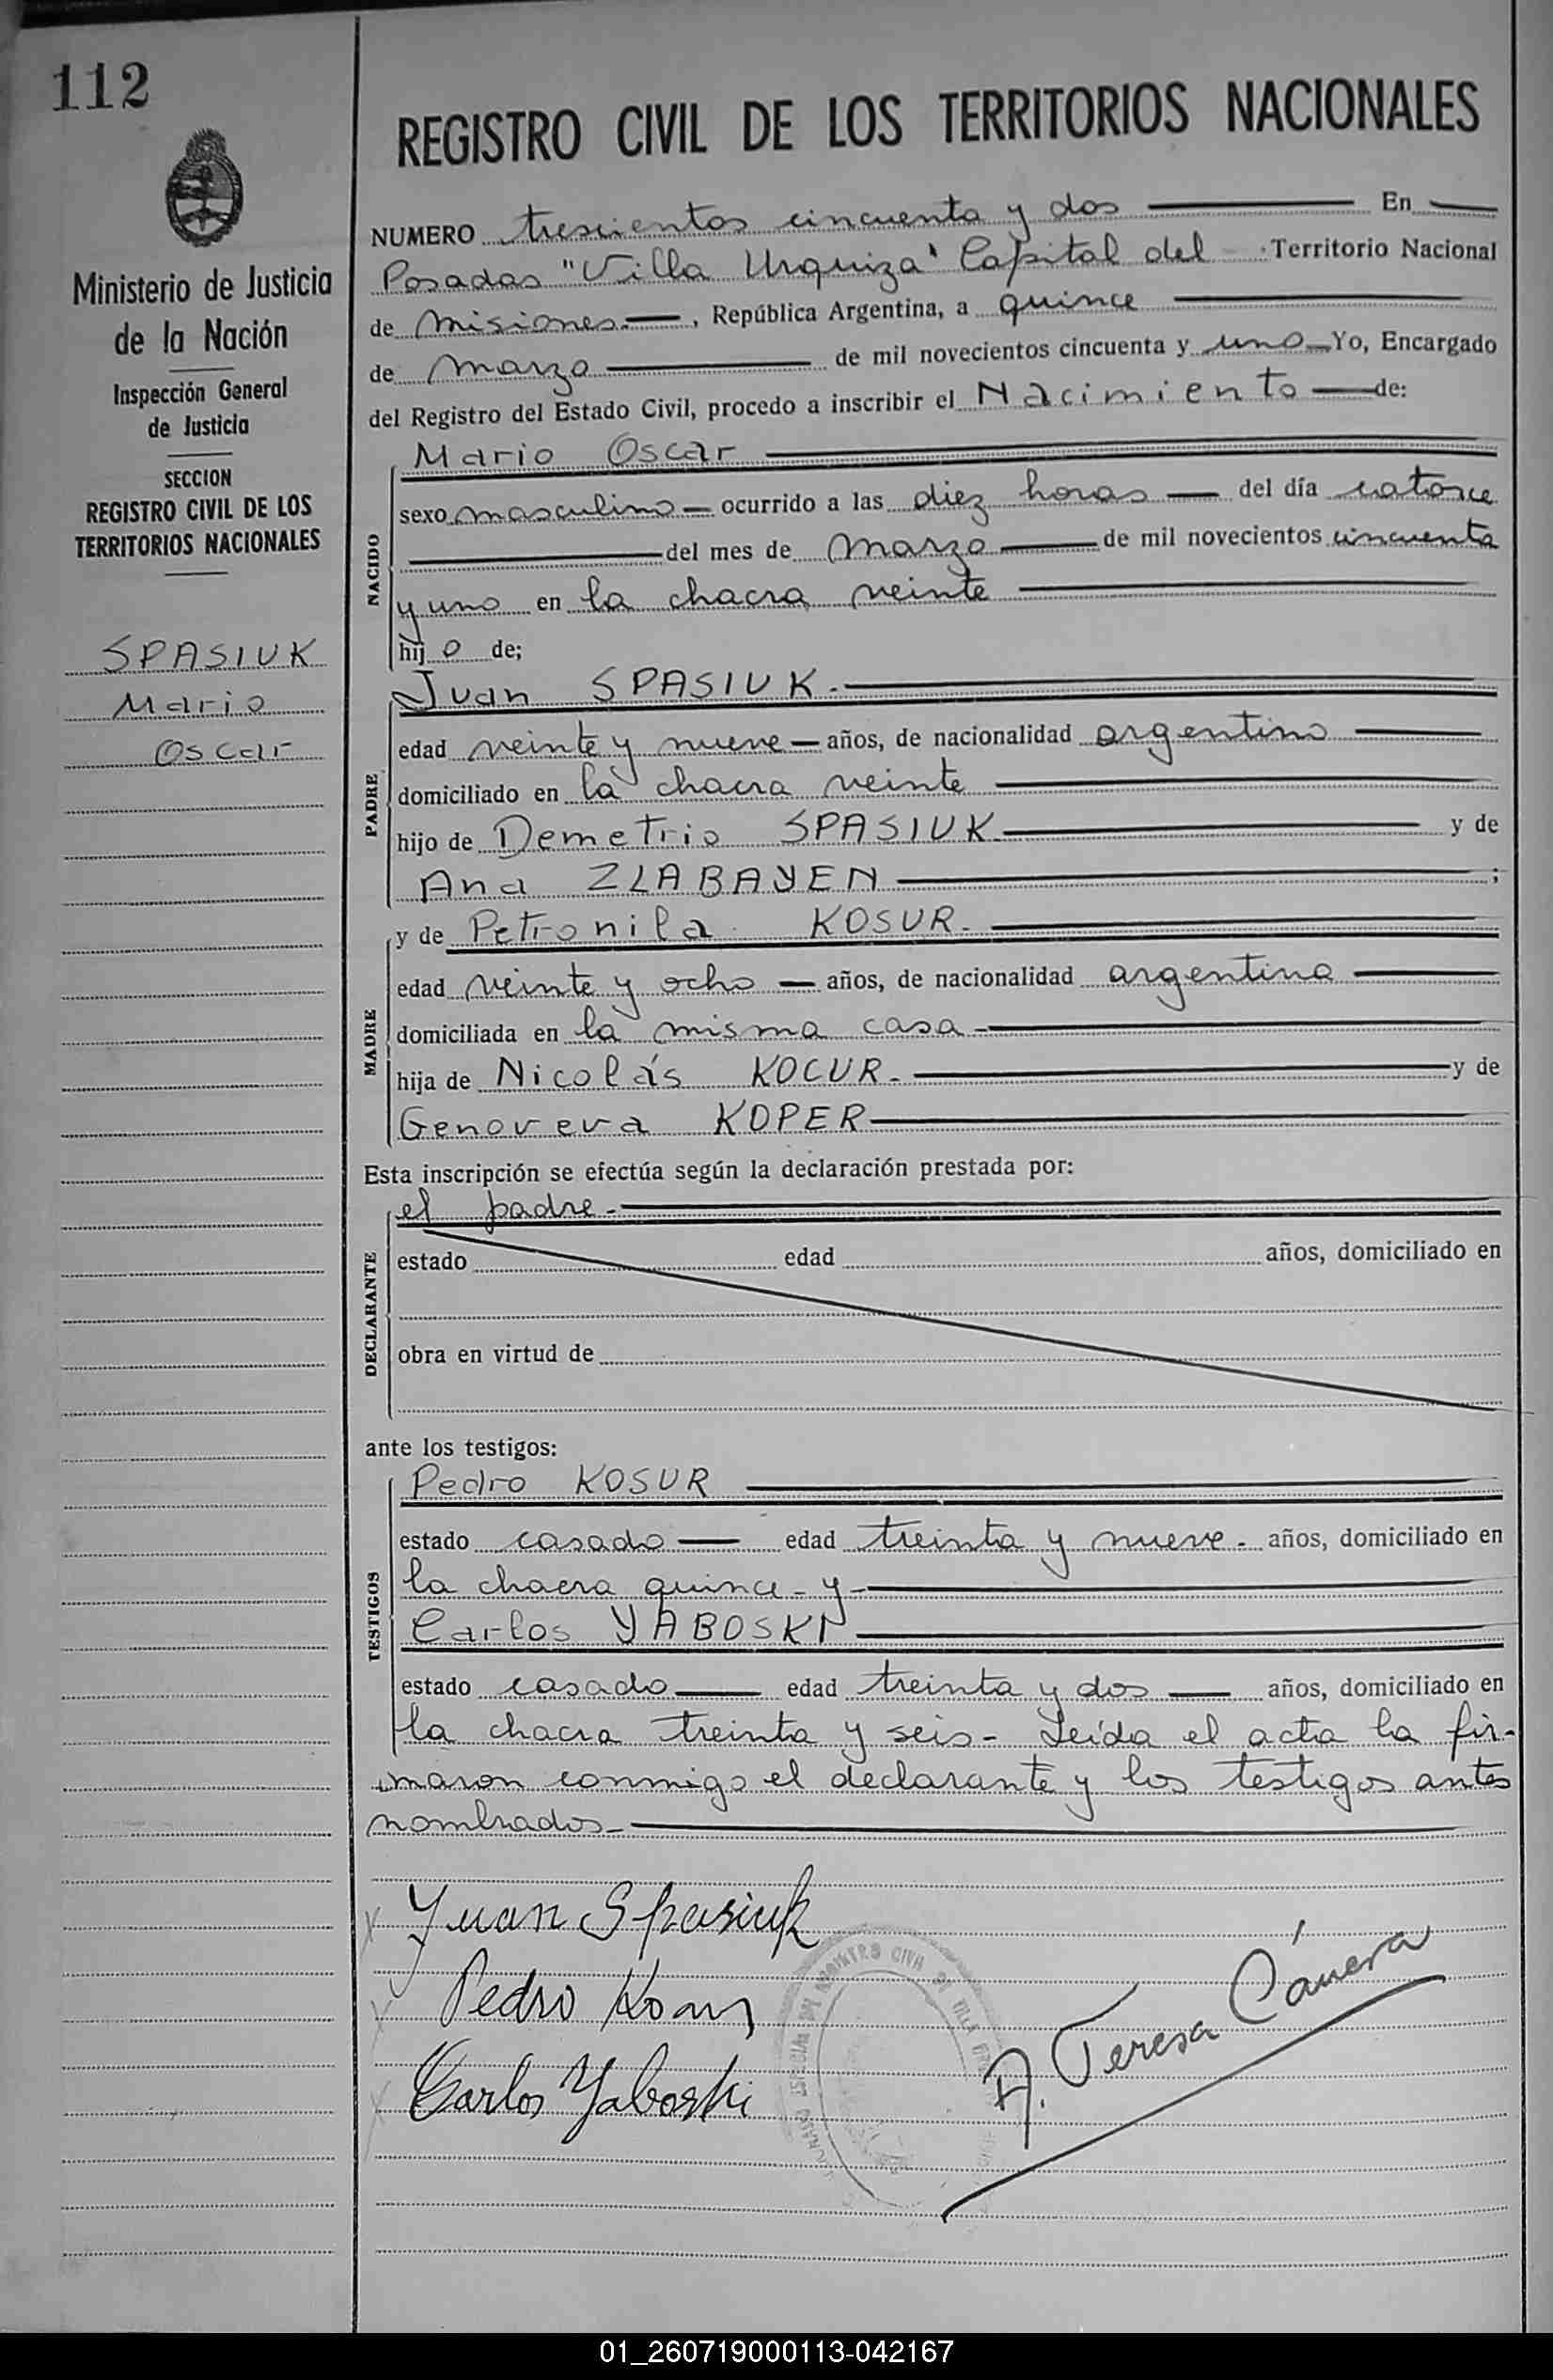 112
Ministerio de Justicia
de la Nación
Inspección General
de Justicia
SECCION
REGISTRO CIVIL DE LOS
TERRITORIOS NACIONALES
SPASIUK
Mario
Oscar
REGISTRO CIVIL DE LOS TERRITORIOS NACIONALES
NUMERO trescientos cincuenta y dos En
Posadas "Villa Urquiza" Capital del Territorio Nacional
de Misiones.-, República Argentina, a quince
de marzo de mil novecientos cincuenta y uno Yo, Encargado
del Registro del Estado Civil, procedo a inscribir el Nacimiento de:
NACIDO
Mario Oscar
sexo masculino ocurrido a las diez horas del día catorce
del mes de marzo de mil novecientos cincuenta
y uno en la chacra veinte
hijo de;
PADRE
Juan SPASIUK.-
edad veinte y nueve años, de nacionalidad argentino
domiciliado en la chacra veinte
hijo de Demetrio SPASIUK y de
Ana ZLABAYEN ;
MADRE
y de Petronila KOSUR.
edad veinte y ocho años, de nacionalidad argentina
domiciliada en la misma casa
hija de Nicolás KOCUR. y de
Genoveva KOPER
Esta inscripción se efectúa según la declaración prestada por:
DECLARANTE
el padre.
estado edad años, domiciliado en
obra en virtud de
ante los testigos:
TESTIGOS
Pedro KOSUR
estado casado edad treinta y nueve. años, domiciliado en
la chacra quince - y
Carlos YABOSKI
estado casado edad treinta y dos años, domiciliado en
la chacra treinta y seis- Leída el acta la fir-
maron conmigo el declarante y los testigos antes
nombrados.
Juan Spasiuk
Pedro
Carlos Yaboski
A. Teresa Cámera
REGISTRO CIVIL DE VILLA
01_260719000113-042167